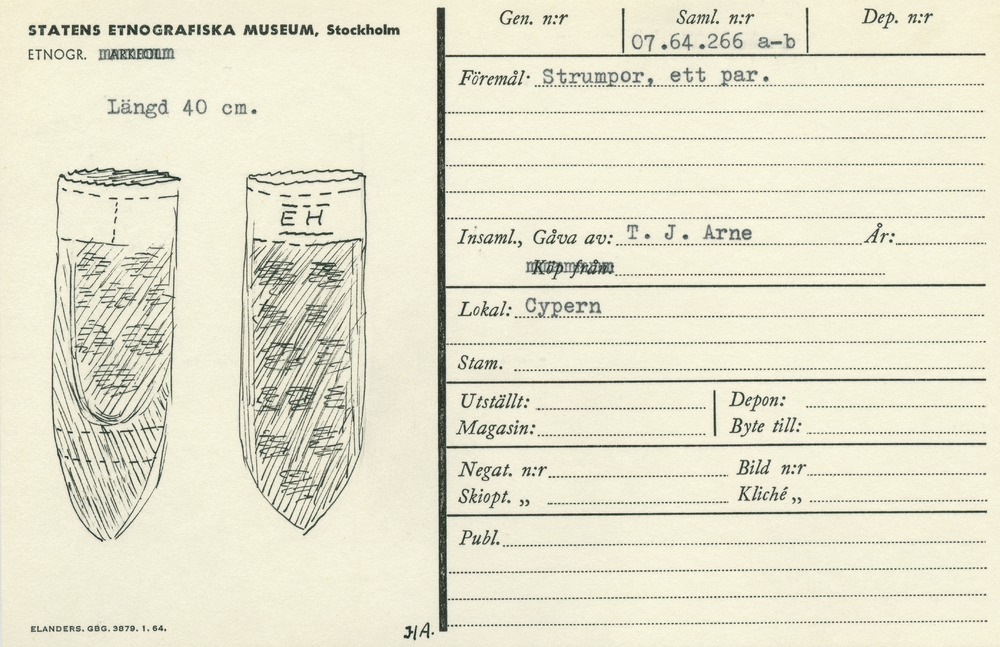 STATENS ETNOGRAFISKA MUSEUM, Stockholm
ETNOGR. ARKEOL.
Längd 40 cm.
E H
ELANDERS. GBG. 3879. 1. 64.
HA.
Gen. n:r
Saml. n:r
07.64.266 a-b
Dep. n:r
Föremål: Strumpor, ett par.
Insaml., Gåva av: T. J. Arne År:
Köp från:
Lokal: Cypern
Stam.
Utställt: Depon:
Magasin: Byte till:
Negat. n:r Bild n:r
Skiopt. „ Kliché „
Publ.